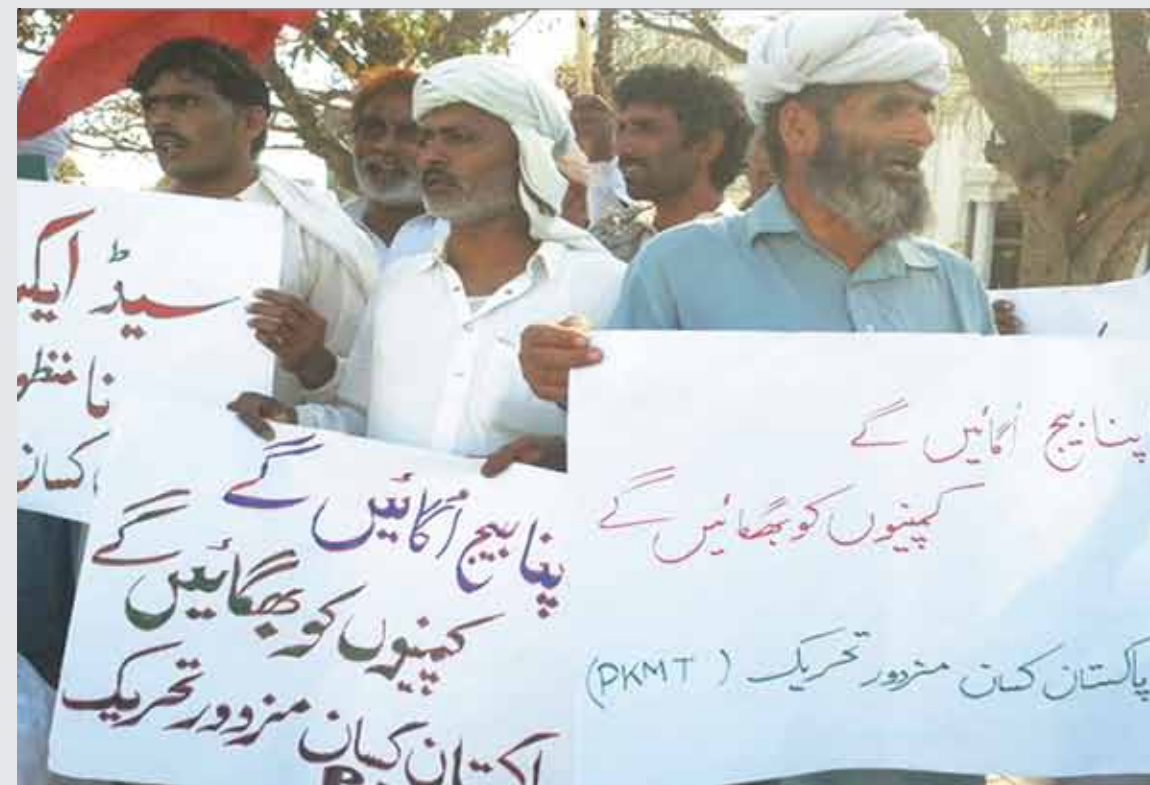 سیڈ
نا
کسان
پنا بیج اُگائیں گے
کمپنیوں کو بھگائیں گے
اکستان کسان مزدور تحریک
اپنا بیج اُگائیں گے
کمپنیوں کو بھگائیں گے
پاکستان کسان مزدور تحریک (PKMT)